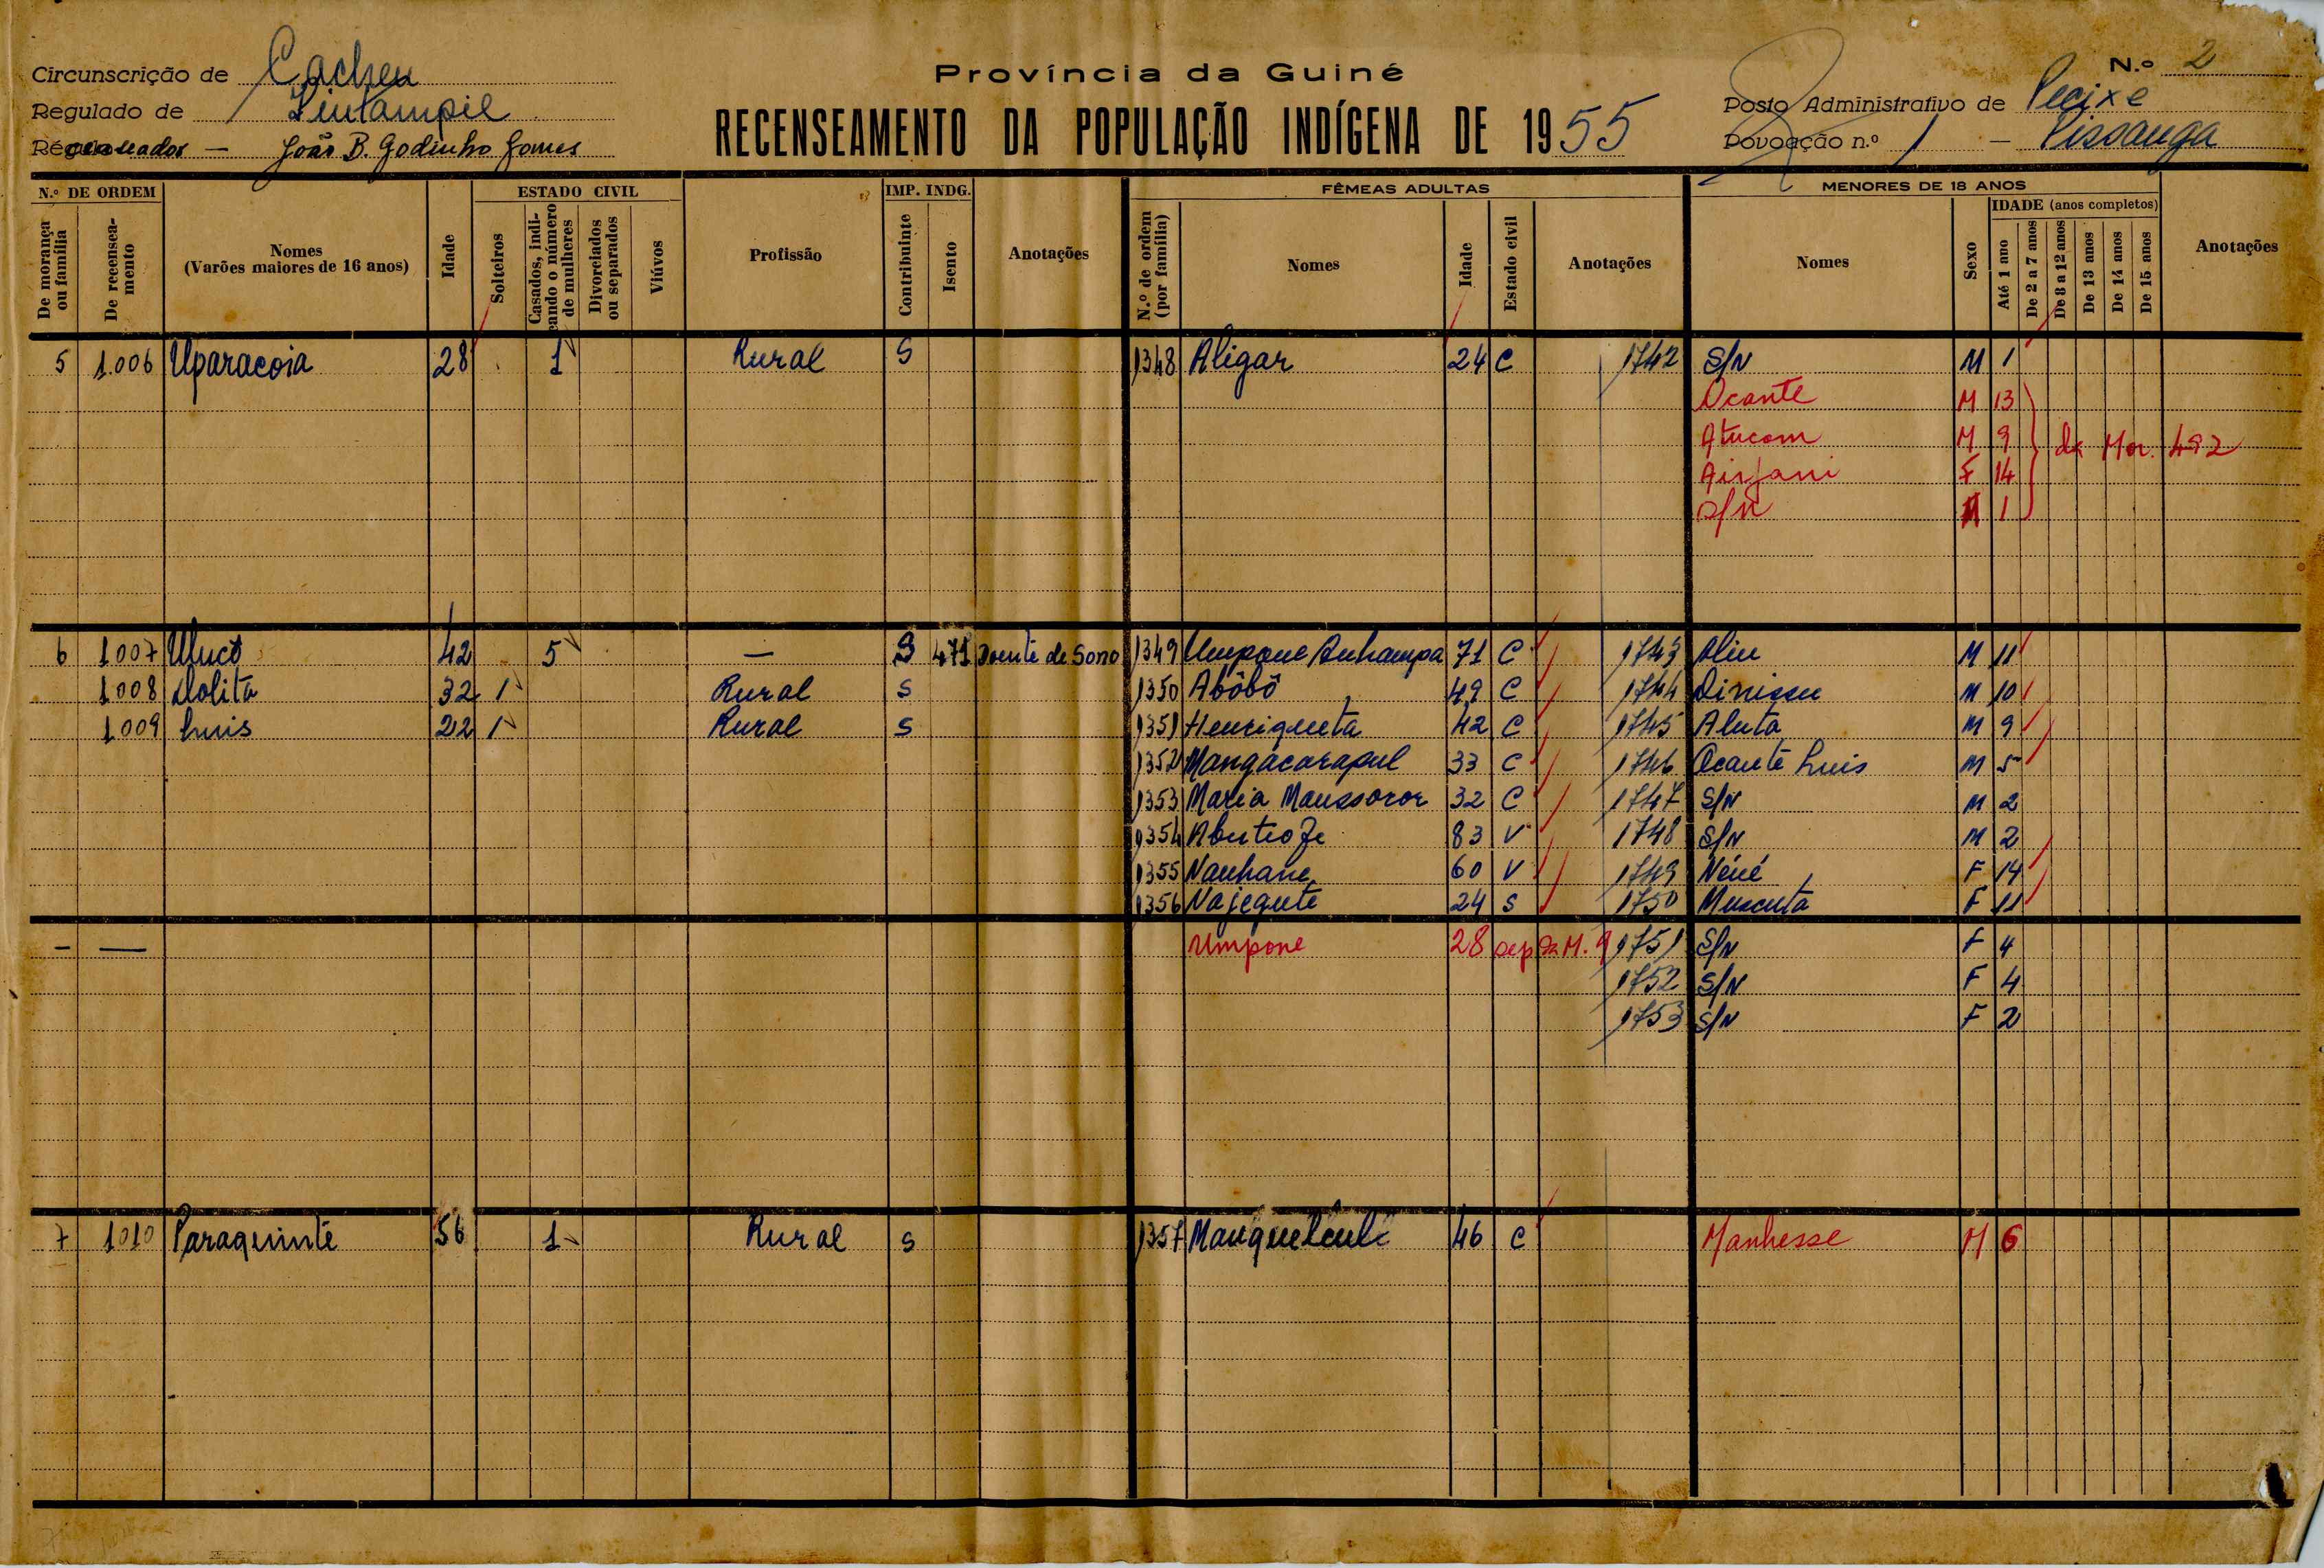 Circunscrição de Cacheu
Regulado de
Recenseador — João B. Godinho Gomes
Província da Guiné
RECENSEAMENTO DA POPULAÇÃO INDÍGENA DE 1955
N.º 2
Posto Administrativo de Pecixe
Povoação n.º 1 —
N.º DE ORDEM
De morança ou família
De recenseamento
Nomes
(Varões maiores de 16 anos)
Idade
ESTADO CIVIL
Solteiros
Casados, indicando o número de mulheres
Divorciados ou separados
Viúvos
Profissão
IMP. INDG.
Contribuinte
Isento
Anotações
FÊMEAS ADULTAS
N.º de ordem (por família)
Nomes
Idade
Estado civil
Anotações
MENORES DE 18 ANOS
Nomes
Sexo
IDADE (anos completos)
Até 1 ano
De 2 a 7 anos
De 8 a 12 anos
De 13 anos
De 14 anos
De 15 anos
Anotações
5 1.006 Uparacoia 28 1 Rural S 1348 Aligar 24 C 1742 S/N M 1
Ocante M 13
Atucom M 9 da Mor. 492
F 14
S/N M 1
6 1007 42 5 — S 471 Doente de Sono 1349 71 C 1743 Aliu M 11
1008 Dolita 32 1 Rural S 1350 Abôbô 49 C 1744 Dinissu M 10
1009 Luis 22 1 Rural S 1351 Henriqueta 42 C 1745 Aluta M 9
1352 Mangacarapul 33 C 1746 Ocante Luis M 5
1353 Maria Maussoror 32 C 1747 S/N M 2
1354 83 V 1748 S/N M 2
1355 Nanhane 60 V 1749 Néné F 14
1356 Najegute 24 S 1750 Muscuta F 11
— — Umpone 28 sep da M. 9 1751 S/N F 4
1752 S/N F 4
1753 S/N F 2
7 1010 Paraquinte 56 1 Rural S 1357 46 C Manhesse M 6